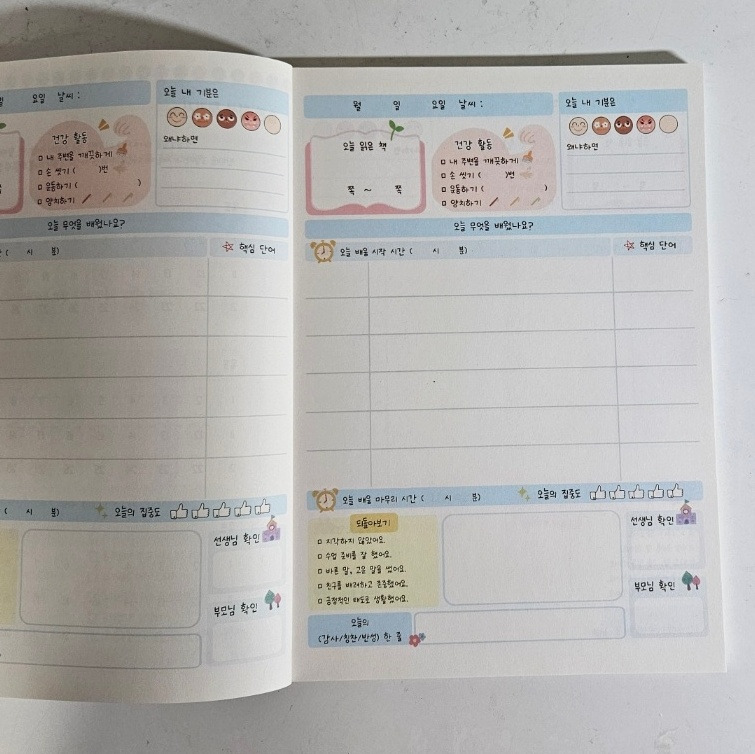 요일 날씨 :
오늘 내 기분은
건강 활동
왜냐하면
내 주변을 깨끗하게!
손 씻기 ( )번
운동하기 ( )
양치하기
오늘 무엇을 배웠나요?
( 시 분)
핵심 단어
( 시 분)
오늘의 집중도
선생님 확인
부모님 확인
월 일 요일 날씨 :
오늘 내 기분은
오늘 읽은 책
쪽 ~ 쪽
건강 활동
내 주변을 깨끗하게!
손 씻기 ( )번
운동하기 ( )
양치하기
왜냐하면
오늘 무엇을 배웠나요?
오늘 배움 시작 시간 ( 시 분)
핵심 단어
오늘 배움 마무리 시간 ( 시 분)
오늘의 집중도
되돌아보기
지각하지 않았어요.
수업 준비를 잘 했어요.
바른 말, 고운 말을 썼어요.
친구를 배려하고 존중했어요.
긍정적인 태도로 생활했어요.
선생님 확인
부모님 확인
오늘의
(감사/칭찬/반성) 한 줄